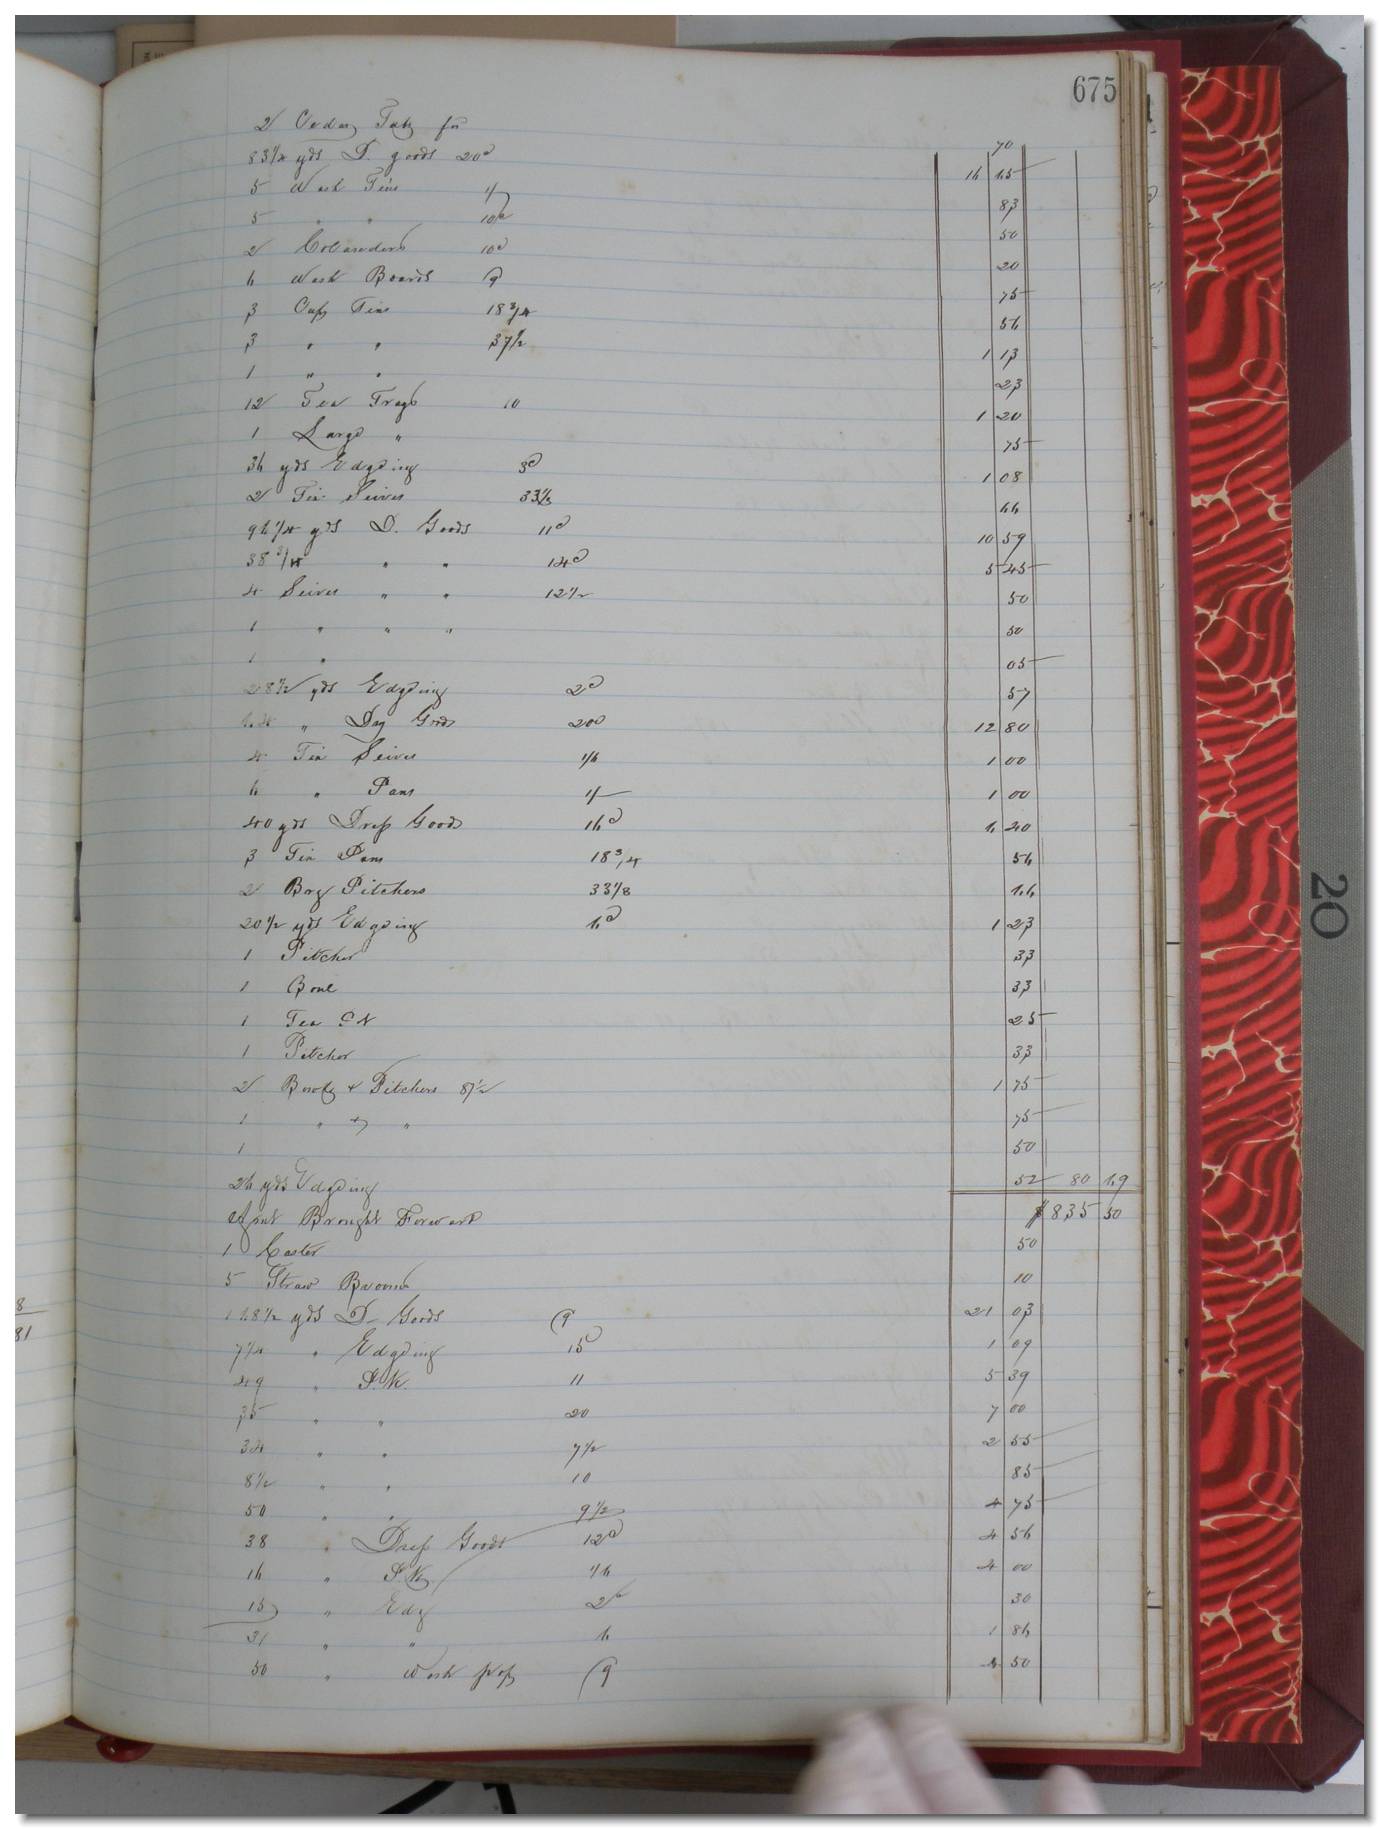 675
2 Cedar Tubs for 70
83 1/4 yds D. goods 20c 16 65
5 Wash Tins 1/ 83
5 " " 10c 50
2 Colanders 10c 20
6 Wash Boards 75
3 Cups Tins 18 3/4 56
3 " " 37 1/2 1 13
1 " " 23
12 Tea Trays 10 1 20
1 Large " 75
36 yds Edgeing 3c 1 08
2 Tin Seives 33 1/3 66
96 1/4 yds D. Goods 11c 10 59
38 3/4 " " 14c 5 45
4 Seives " " 12 1/2 50
1 " " " 50
1 " 05
28 1/2 yds Edgeing 2c 57
64 " Dry Goods 20c 12 80
4 Tin Seives 1 00
6 " Pans 1/ 1 00
40 yds Dress Goods 16c 6 40
3 Tin Pans 18 3/4 56
2 Pitchers 33 1/3 66
20 1/2 yds Edgeing 6c 1 23
1 Pitcher 33
1 Bowl 33
1 Tea 25
1 Pitcher 33
2 Bowls & Pitchers 87 1/2 1 75
1 " & " 75
1 50
26 yds Edgeing 52 80 69
Amt Brought Forward $835 50
1 Castor 50
5 Straw Brooms 10
168 1/2 yds D. Goods 21 03
7 1/4 " Edgeing 15c 1 09
49 " 11 5 39
35 " " 20 7 00
34 " " 7 1/2 2 55
8 1/2 " " 10 85
50 " " 9 1/2 4 75
38 " Dress Goods 12c 4 56
16 " 4 00
15 " Edg 2c 30
31 " " 6 1 86
50 " Wash 50
8
81
20